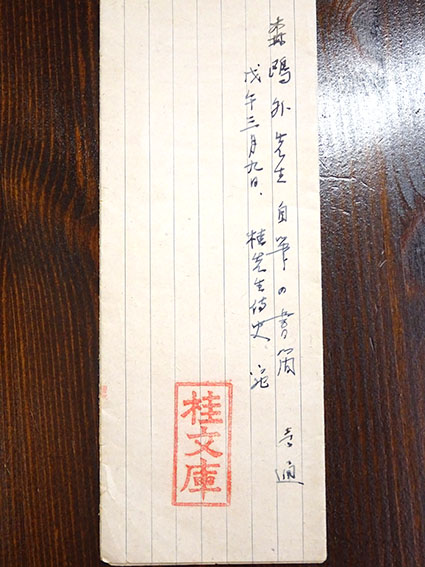 森鴎外先生自筆の書簡 壱通
戊午三月九日、桂先生侍史、宛
桂文庫